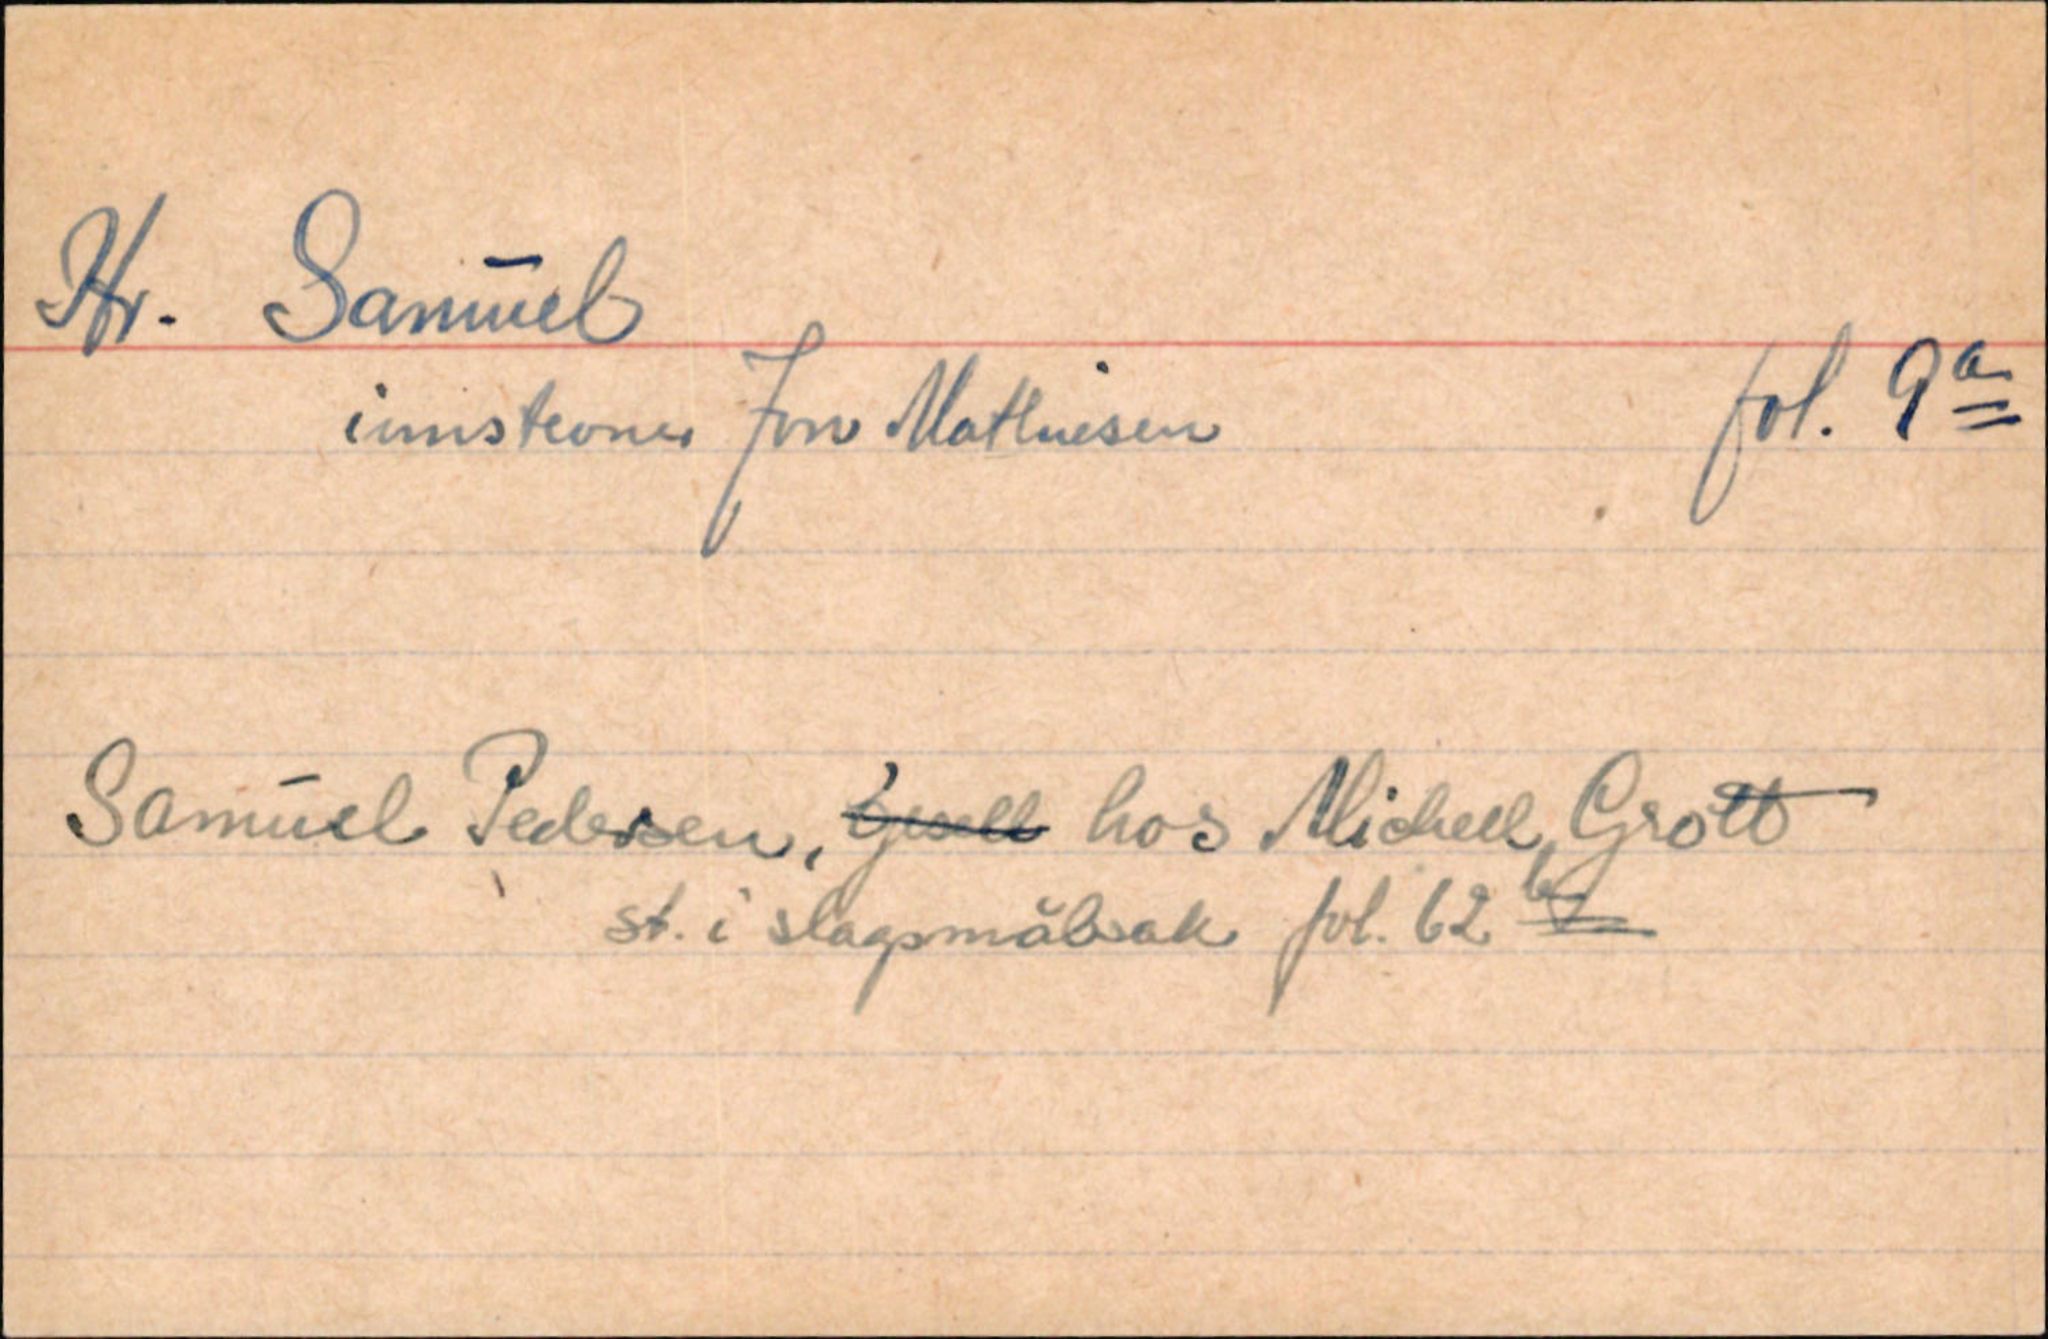 Hr. Samuel
innstevner Jon Mathiesen fol. 9a
Samuel Pedersen, hos Michell Grott
st. i slagsmålsak fol. 62b